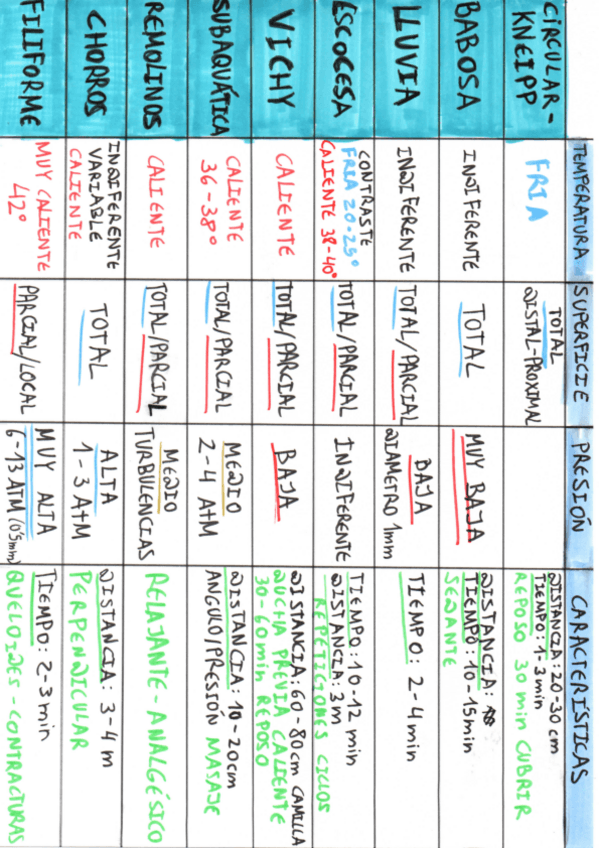 TEMPERATURA
SUPERFICIE
PRESIÓN
CARACTERÍSTICAS
CIRCULAR-
KNEIPP
FRIA
TOTAL
DISTAL-PROXIMAL
DISTANCIA: 20-30 cm
TIEMPO: 1-3 min
REPOSO 30 min CUBRIR
BABOSA
INDIFERENTE
TOTAL
MUY BAJA
DISTANCIA:
TIEMPO: 10-15min
SEDANTE
LLUVIA
INDIFERENTE
TOTAL/PARCIAL
BAJA
DIAMETRO 1mm
TIEMPO: 2-4min
ESCOCESA
CONTRASTE
FRIA 20-25°
CALIENTE 38-40°
TOTAL/PARCIAL
INDIFERENTE
TIEMPO: 10-12 min
DISTANCIA: 3m
REPETICIONES CICLOS
VICHY
CALIENTE
TOTAL/PARCIAL
BAJA
DISTANCIA: 60-80cm CAMILLA
DUCHA PREVIA CALIENTE
30-60min REPOSO
SUBAQUÁTICA
CALIENTE
36-38°
TOTAL/PARCIAL
MEDIO
2-4 ATM
DISTANCIA: 10-20cm
ANGULO/PRESIÓN MASAJE
REMOLINOS
CALIENTE
TOTAL/PARCIAL
MEDIO
TURBULENCIAS
RELAJANTE-ANALGÉSICO
CHORROS
INDIFERENTE
VARIABLE
CALIENTE
TOTAL
ALTA
1-3 ATM
DISTANCIA: 3-4 m
PERPENDICULAR
FILIFORME
MUY CALIENTE
42°
PARCIAL/LOCAL
MUY ALTA
6-13 ATM (0'5mm)
TIEMPO: 2-3min
QUELOIDES-CONTRACTURAS